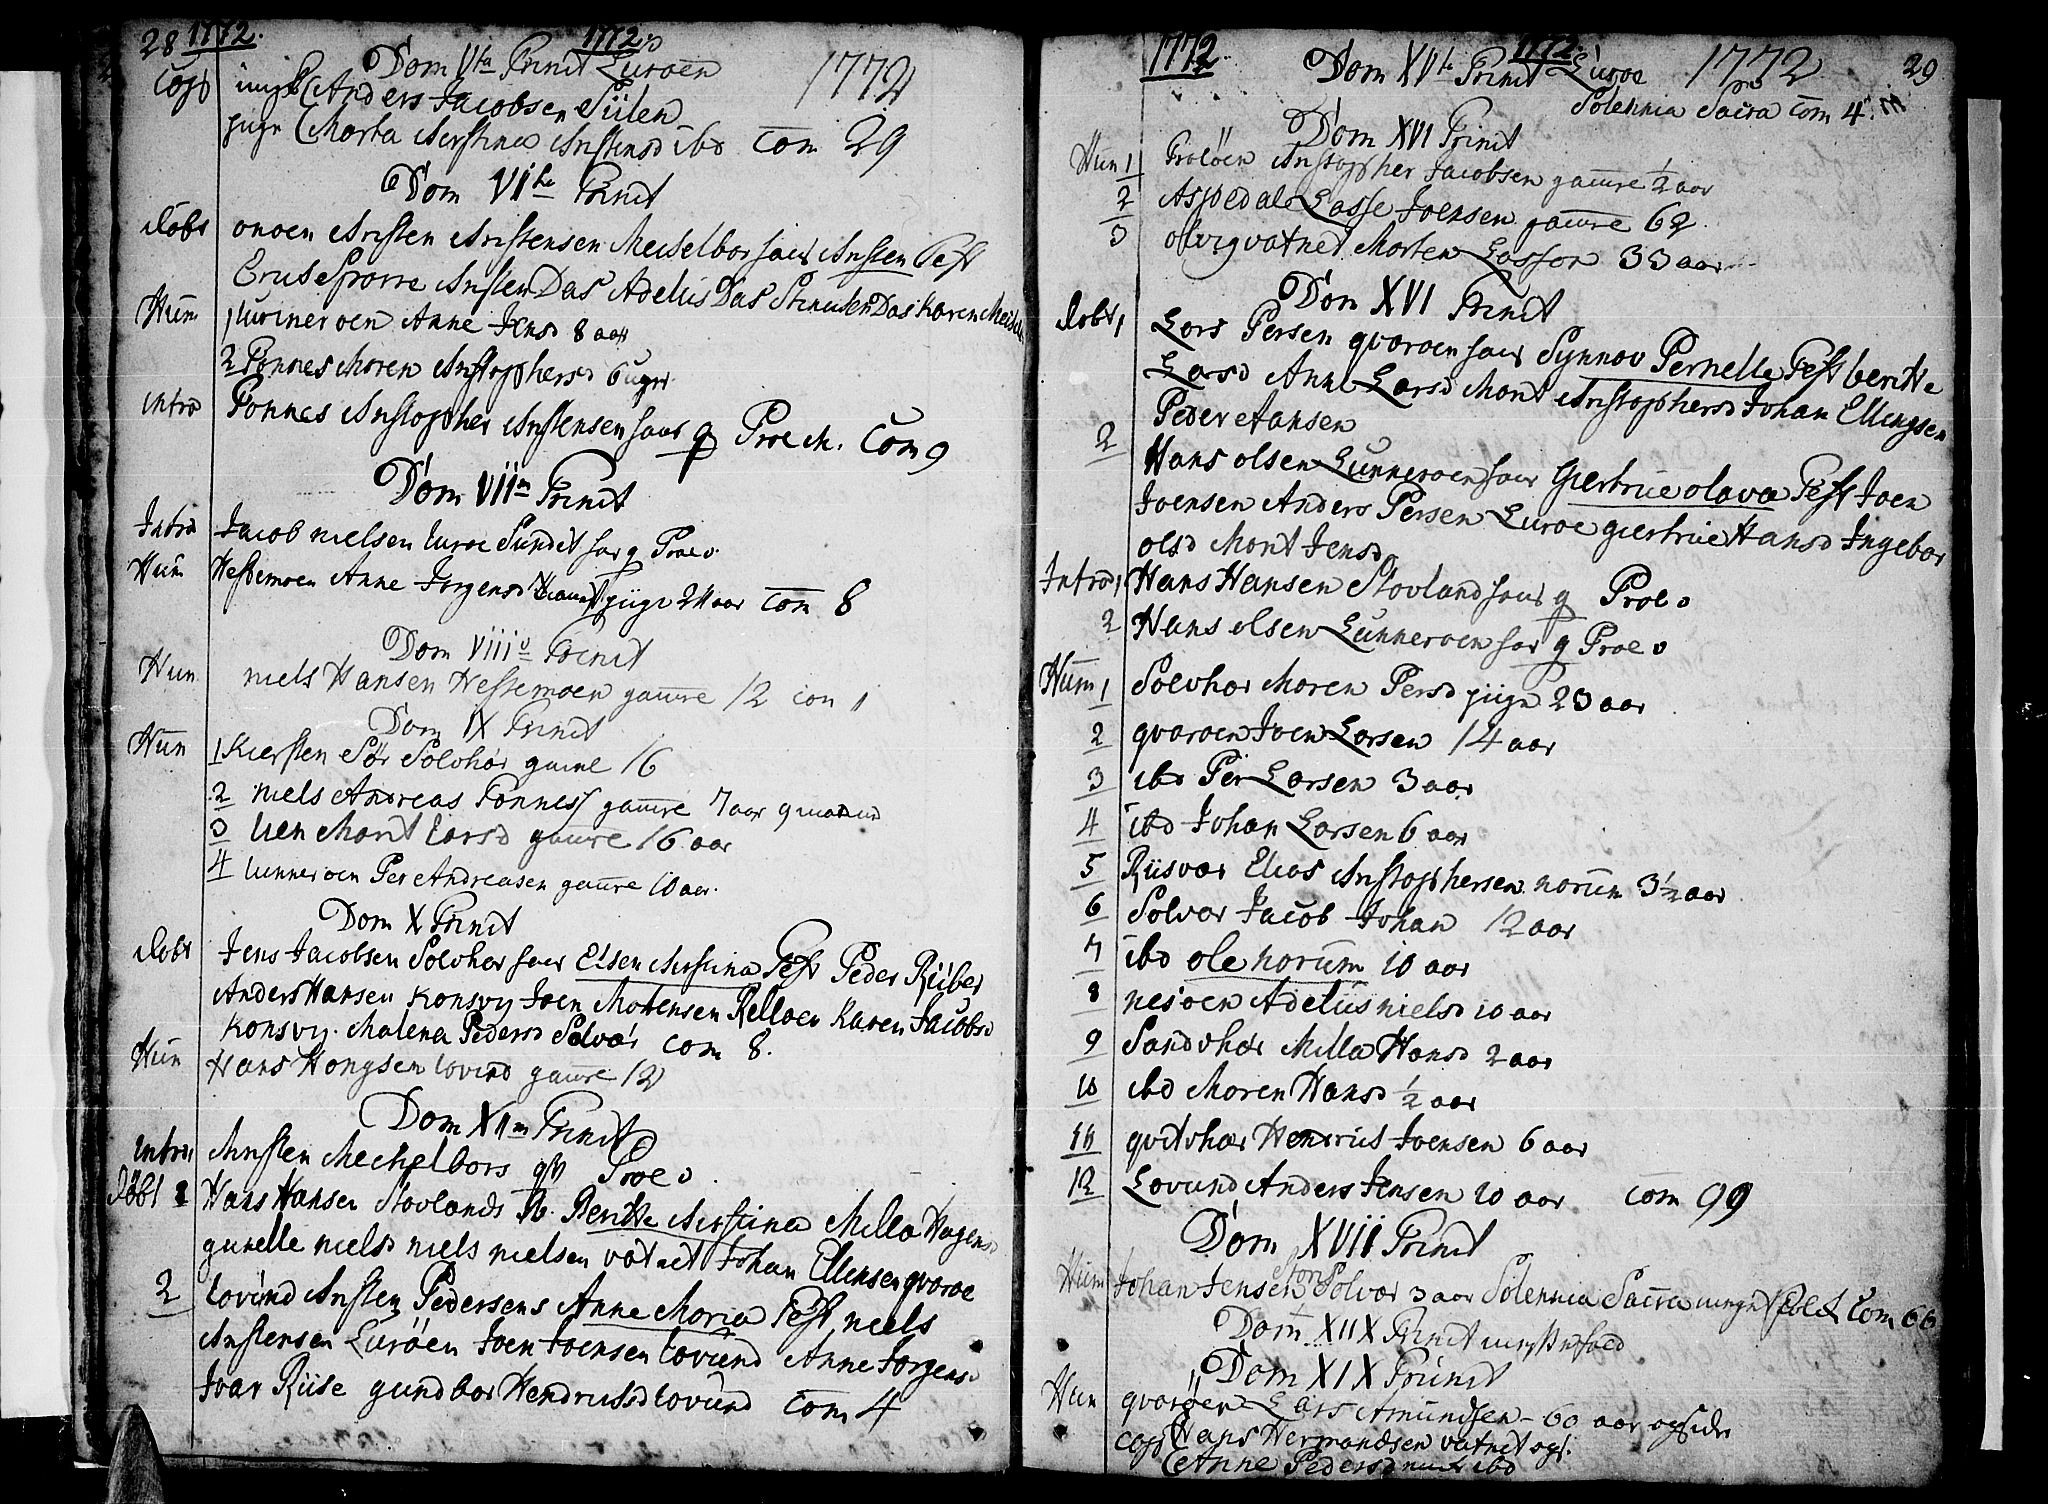 28 1772. 1772
Dom Vta Trinit Luröen 1772
Cop ungk Anders Jacobsen Siilen
pige Marta Kirstina Kristensd ibd Com 29
Dom VIte Trinit
Döbt onöen Kristen Kristensen Meiselbor barn Kristen Test
Kristen Das Adelus Das Steensen Das Karen
Hum 1 lurineröen Anne Jensd 8 aar
2 Tonnes Maren Kristophersd 6 uger
intro Tonnes Kristopher Kristensen hans q Præ M. Com 9
Dom VIIm Trinit
Intro Jacob nielsen luröe Sundet hans q Præ
Hum Hestemoen Anne Jörgensd pige 24 aar Com 8
Dom VIII Trinit
Hum niels Hansen Hestemoen gamle 12 com 1
Dom IX Trinit
Hum 1 Kiersten Sör Solvhör gamle 16
2 niels Andreas Tonnes gamle 7 aar 9 maaned
3 lien Marit Larsd gamle 16 aar
4 lunneröen Per Andreasen gamle 10 aar.
Dom X Trinit
Döbt Jens Jacobsen Solvhör barn Elsen Kirstina Test Peder Riiber
Anders Hansen Konsvig Joen Mortensen Relloen Karen Jacobsd
Konsvig. Malena Pedersd Solvær com 8.
Hum Hans Hongsen lovund gamle 12
Dom XIIm Trinit
intro Kristen Mechelbors q Præ
Döbt 1 Hans Hansen Stovlands B. Beritte Kirstina Milla Hagensd
gunelle nielsd niels nielsen vatnet Johan Ellensen qvaröe
2 lovund Kristen Pedersens Anne Maria Test niels
Kristensen Luröen Joen Joensen lovund Anne Jorgensd
Ivar Riise gundbor Hendriksd lovund Com 4
1772 1772. 29
Dom XVte Trinit Luröe 1772
Solennia Sacra com 4
Dom XVI Trinit
Hum 1 Kristopher Jacobsen gamle ½ aar
2 Aspedale Lasse Joensen gamle 62
3 olvigvatnet Morten Lasson 33 aar
Dom XVI Trinit
Döbt 1 Lars Persen qvaröen barn Synnov Pernelle Test beritte
Larsd Anne Larsd Marit Kristophersd Johan Ellingsen
Peder Hansen
2 Hans olsen Lunneröen barn Giertrue olava Test Joen
Joensen Anders Persen Luröe giertrue Hansd Ingebor
olsd Marit Jensd
Intro 1 Hans Hansen Stovland hans q Præ
2 Hans olsen Lunneröen hans q Præ
Hum 1 Solvhör Maren Persd pige 23 aar
2 qvaröen Joen Larsen 14 aar
3 ibd Per Larsen 3 aar
4 ibd Johan Larsen 6 aar
5 Riisvær Elias Kristophersen norum 3½ aar
6 Solvær Jacob Johan 12 aar
7 ibd ole norum 10 aar
8 nesöen Adelus nielsd 10 aar
9 Sandvhær Milla Hansd 2 aar
10 ibd Maren Hansd ½ aar
11 qvitvhær Hendrich Joensen 6 aar
12 Lovund Anders Jensen 10 aar com 99
Dom XVII Trinit
Hum Johan Jensen Solvær 3 aar Solennia Sacra Com 66
Dom XIIX Trinit
Dom XIX Trinit
Hum qvaröen Lars Amundsen 60 aar
cop Hans Hermandsen vatnet
Anne Pedersd ibd